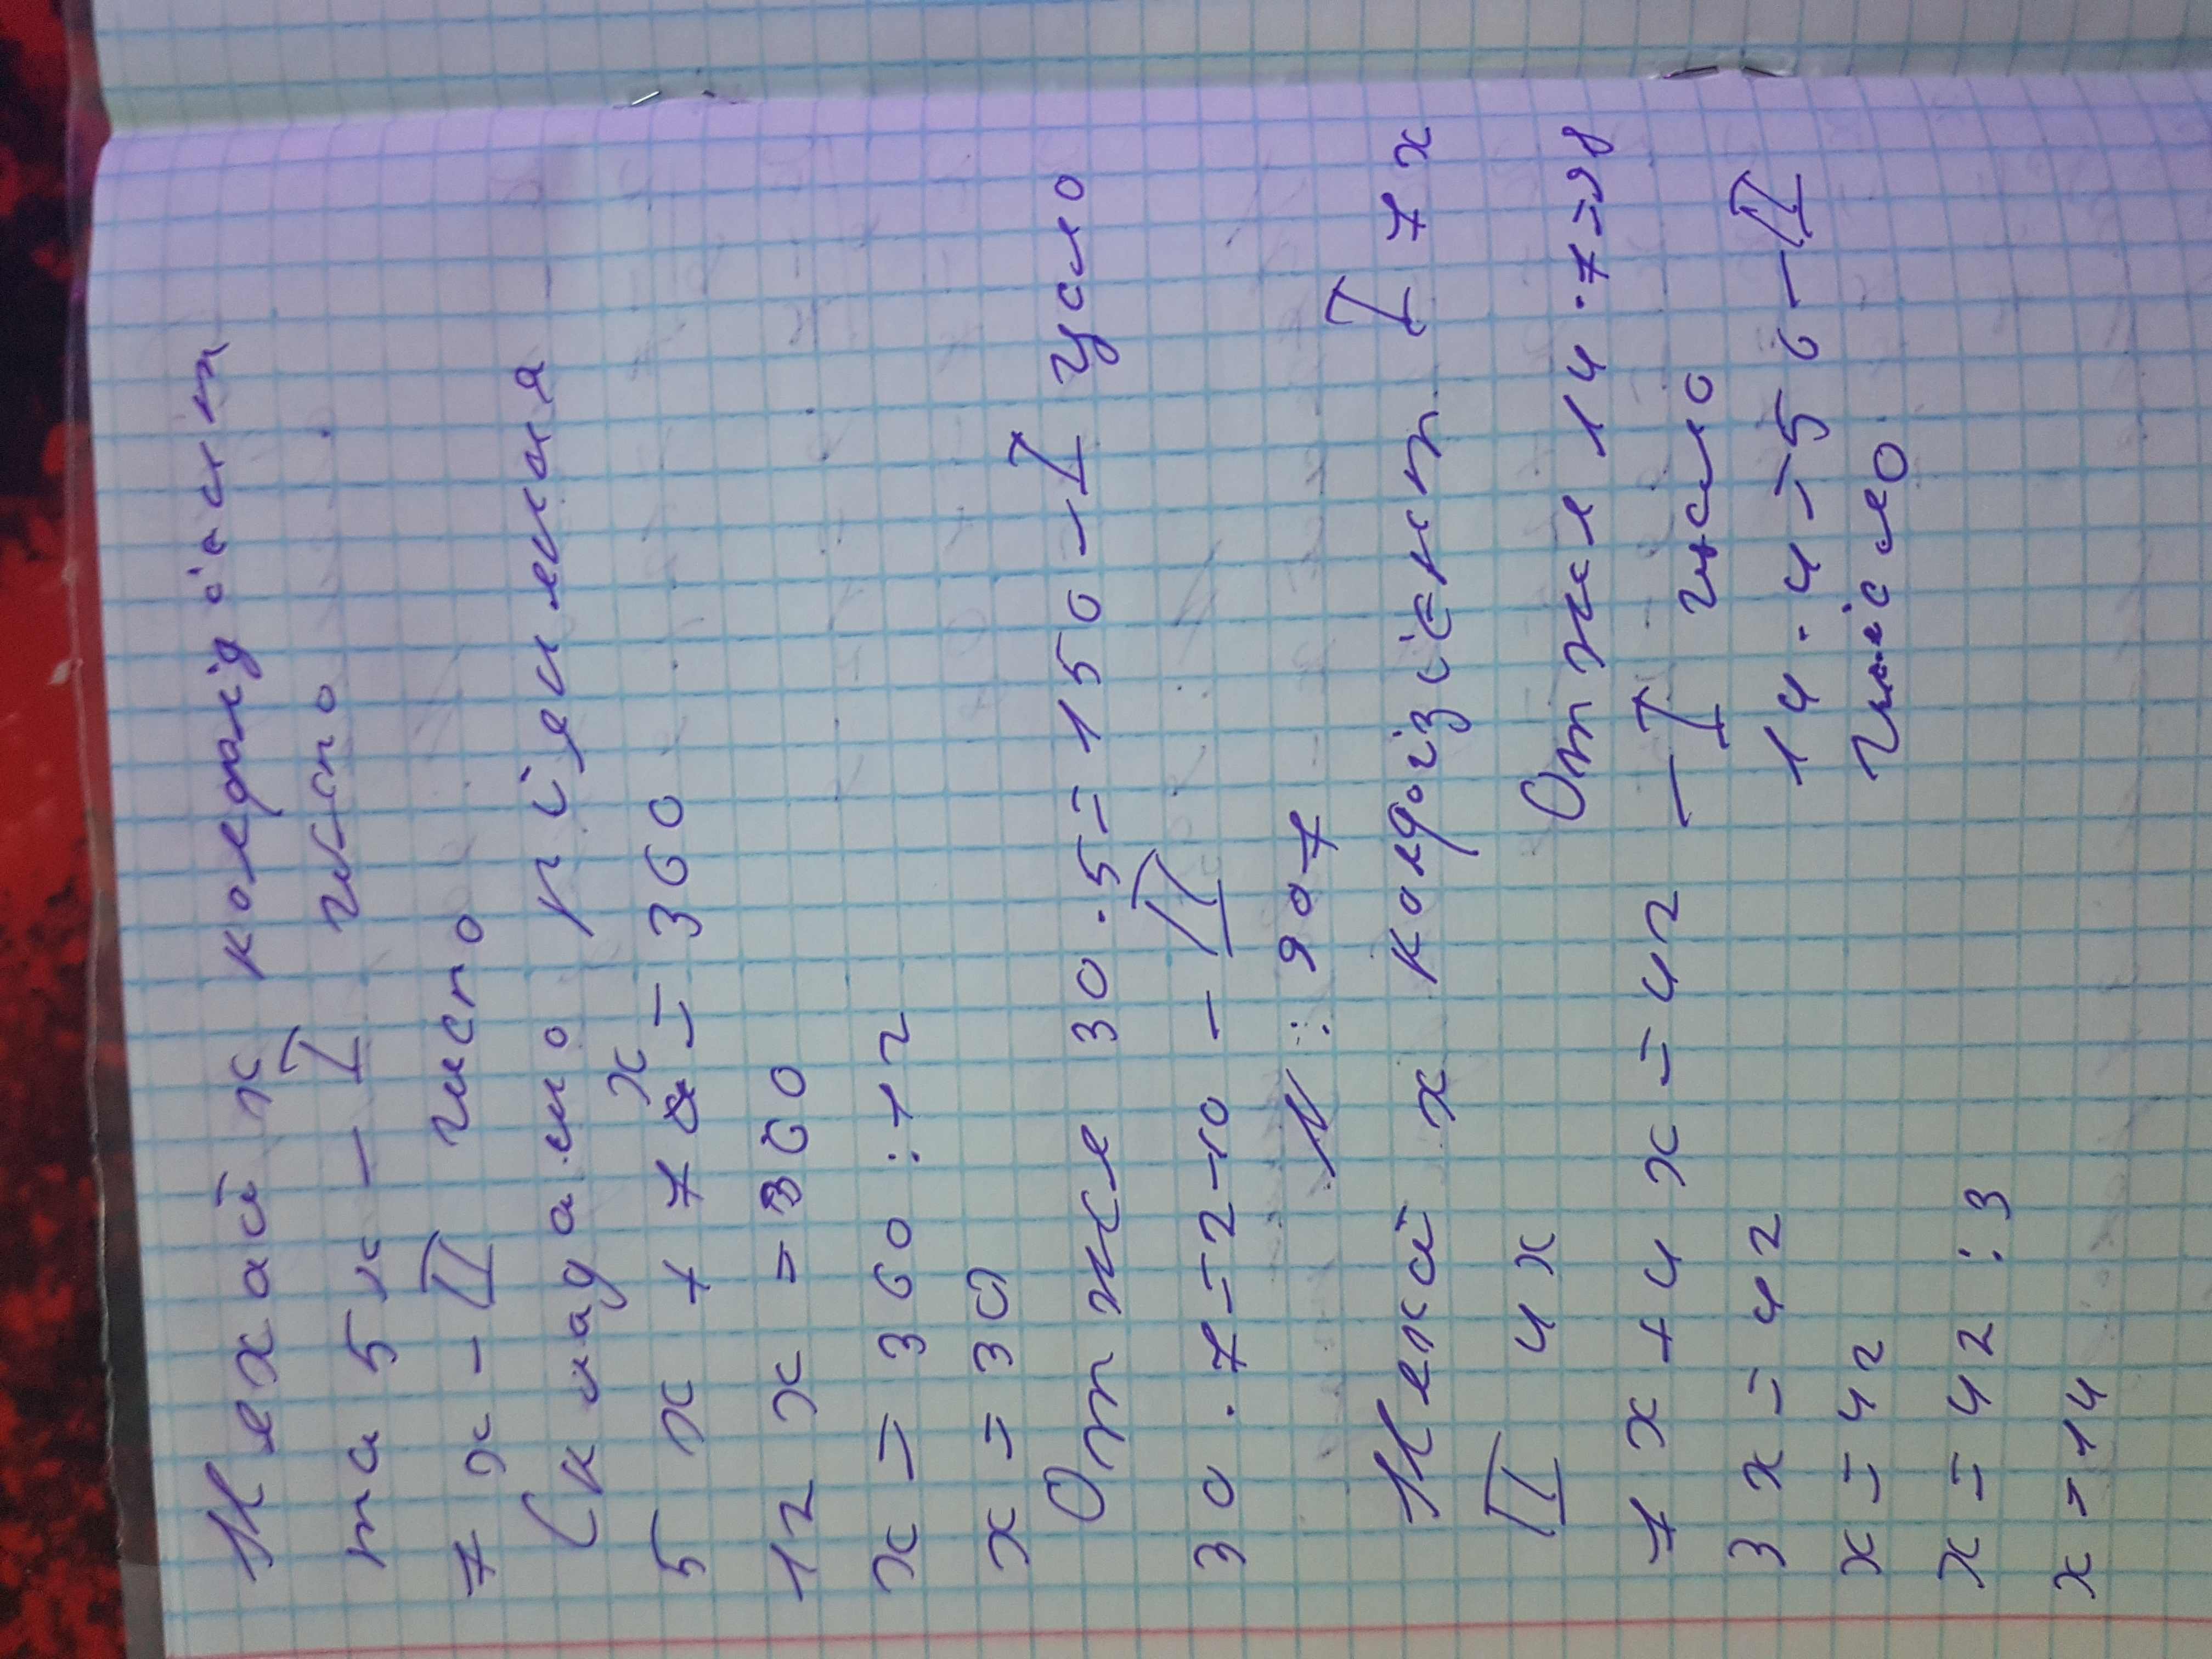 Нехай х коефіцієнт
та 5х - I число
7х - II число
Складемо рівняння
5х + 7х = 360
12х = 360
х = 360 : 12
х = 30
Отже 30 · 5 = 150 - I число
30 · 7 = 210 - II
№ 907
Нехай х коефіцієнт I 7х
II 4х
7х + 4х = 42
3х = 42
х = 42
х = 42 : 3
х = 14
Отже 14 · 7 = 98
- I число
14 · 4 = 56 - II
число